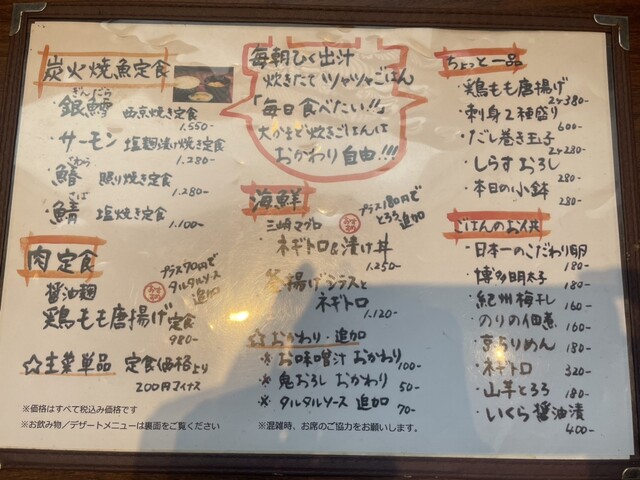 炭火焼魚定食
ぎんだら
・銀鱈 西京焼き定食
1.550-
・サーモン 塩麹漬け焼き定食
1.280-
さわら
・鰆 照り焼き定食
1.280-
さば
・鯖 塩焼き定食
1.100-
肉定食
プラス90円で
タルタルソース
追加
醤油麹
鶏もも唐揚げ定食
980-
☆主菜単品 定食価格より
200円マイナス
※価格はすべて税込み価格です
※お飲み物/デザートメニューは裏面をご覧ください
毎朝ひく出汁
炊きたてツヤツヤごはん
「毎日食べたい!!」
大かまど炊きごはんは
おかわり自由!!!
海鮮
プラス180円で
とろろ追加
三崎マグロ
ネギトロ&漬け丼
1.250-
釜揚げシラスと
ネギトロ
1.120-
☆おかわり・追加
※お味噌汁 おかわり
100-
※鬼おろし おかわり
50-
※タルタルソース 追加
70-
※混雑時、お席のご協力をお願いします。
ちょっと一品
・鶏もも唐揚げ
2ヶ380-
・刺身2種盛り
600-
・だし巻き玉子
2ヶ280-
・しらすおろし
280-
・本日の小鉢
280-
ごはんのお供
・日本一のこだわり卵
180-
・博多明太子
180-
・紀州梅干し
160-
・のりの佃煮
160-
・京らりめん
180-
・ネギトロ
320-
・山芋とろろ
180-
・いくら醤油漬
400-